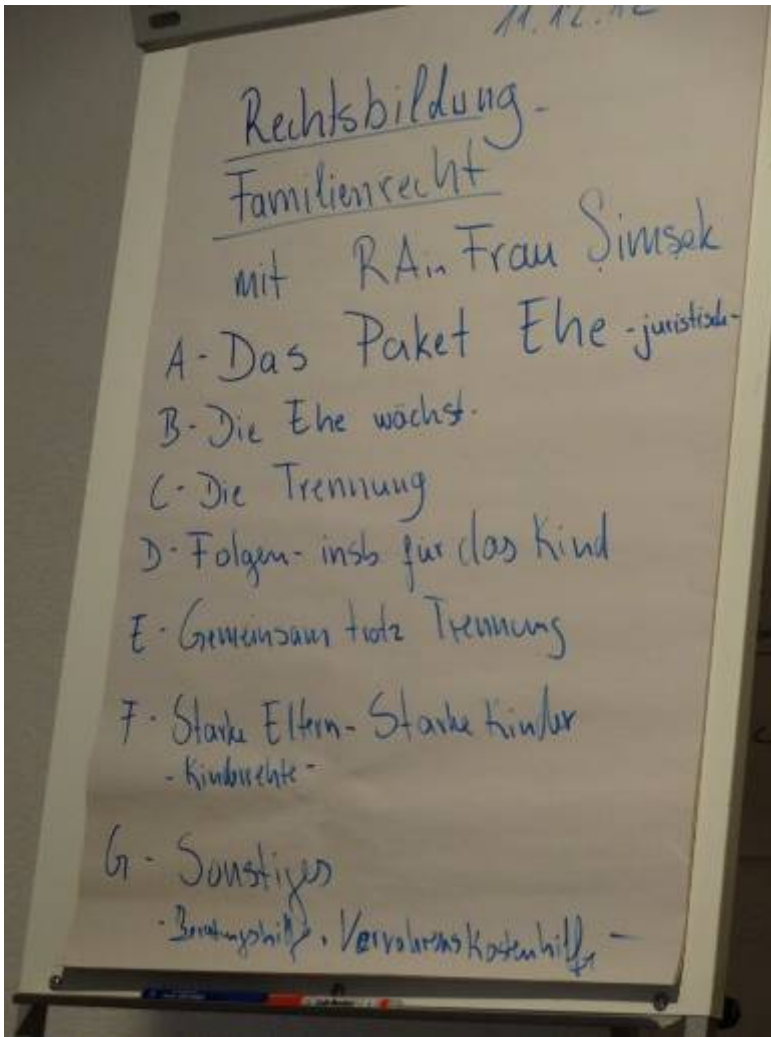 11.12.12
Rechtsbildung -
Familienrecht
mit RAin Frau Şimsek
A - Das Paket Ehe - juristisch -
B - Die Ehe wächst.
C - Die Trennung
D - Folgen - insb für das Kind
E - Gemeinsam trotz Trennung
F - Starke Eltern - Starke Kinder
- Kinderrechte -
G - Sonstiges
- Beratungshilfe, Verfahrenskostenhilfe -